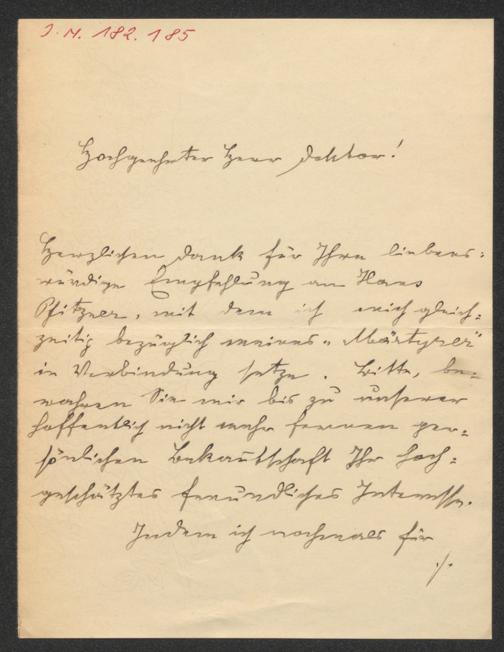 J. N. 182.185
Hochgeehrter Herr Doktor!
Herzlichen Dank für Ihre liebens-
würdige Empfehlung an Hans
Pfitzner, mit dem ich mich gleich-
zeitig bezüglich meines „Märtyrer"
in Verbindung setze. Bitte, be-
wahren Sie mir bis zu unserer
hoffentlich nicht mehr fernen per-
sönlichen Bekanntschaft Ihr hoch-
geschätztes freundliches Interesse.
Indem ich nochmals für
./.